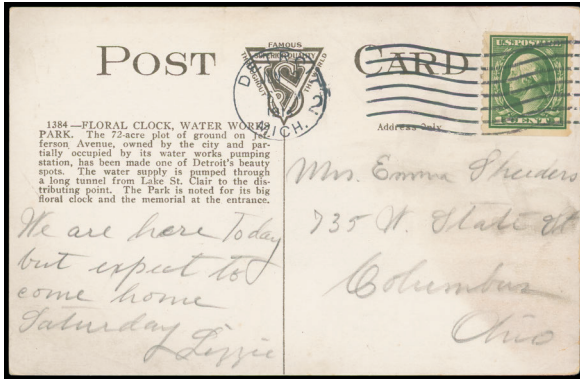 POST CARD
FAMOUS
SUPERIOR QUALITY
THROUGHOUT THE WORLD
MICH.
2
U.S. POSTAGE
1384—FLORAL CLOCK, WATER WORKS
PARK. The 72-acre plot of ground on Jef-
ferson Avenue, owned by the city and par-
tially occupied by its water works pumping
station, has been made one of Detroit's beauty
spots. The water supply is pumped through
a long tunnel from Lake St. Clair to the dis-
tributing point. The Park is noted for its big
floral clock and the memorial at the entrance.
Address Only
We are here Today
but expect to
come home
Saturday Lizzie
Mrs. Emma
735 W. State St
Columbus
Ohio